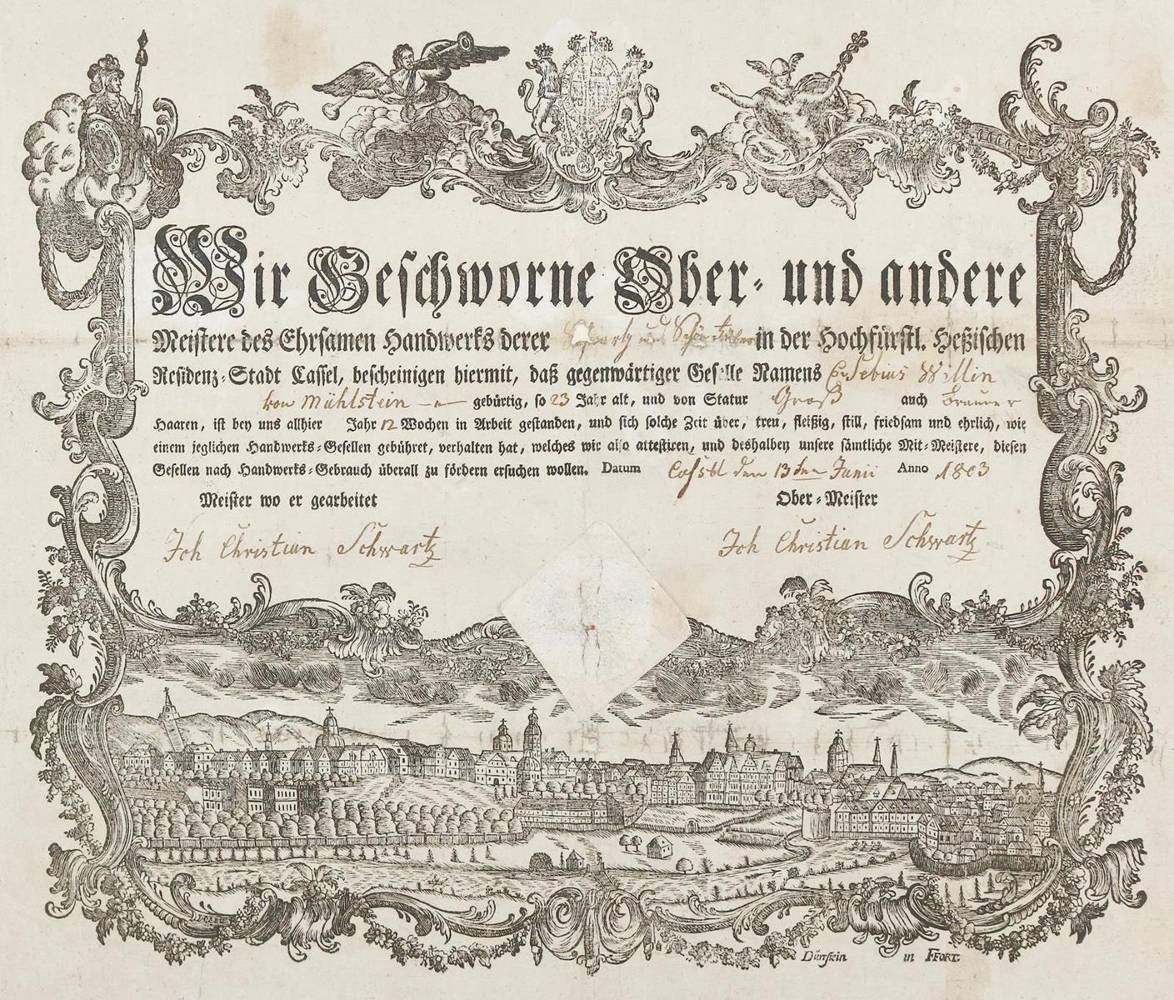 Wir Geschworne Ober- und andere
Meistere des Ehrsamen Handwerks derer Schwartz und Schön in der Hochfürstl. Heßischen
Residenz-Stadt Cassel, bescheinigen hiermit, daß gegenwärtiger Geselle Namens Eusebius Willin
von Mühlstein gebürtig, so 23 Jahr alt, und von Statur Groß auch Brauner
Haaren, ist bey uns allhier Jahr 12 Wochen in Arbeit gestanden, und sich solche Zeit über, treu, fleißig, still, friedsam und ehrlich, wie
einem jeglichen Handwerks-Gesellen gebühret, verhalten hat, welches wir also attestiren, und deshalben unsere sämtliche Mit-Meistere, diesen
Gesellen nach Handwerks-Gebrauch überall zu fördern ersuchen wollen. Datum Cassel den 13ten Junii Anno 1803
Meister wo er gearbeitet Ober-Meister
Joh Christian Schwartz Joh Christian Schwartz
in FFORT.